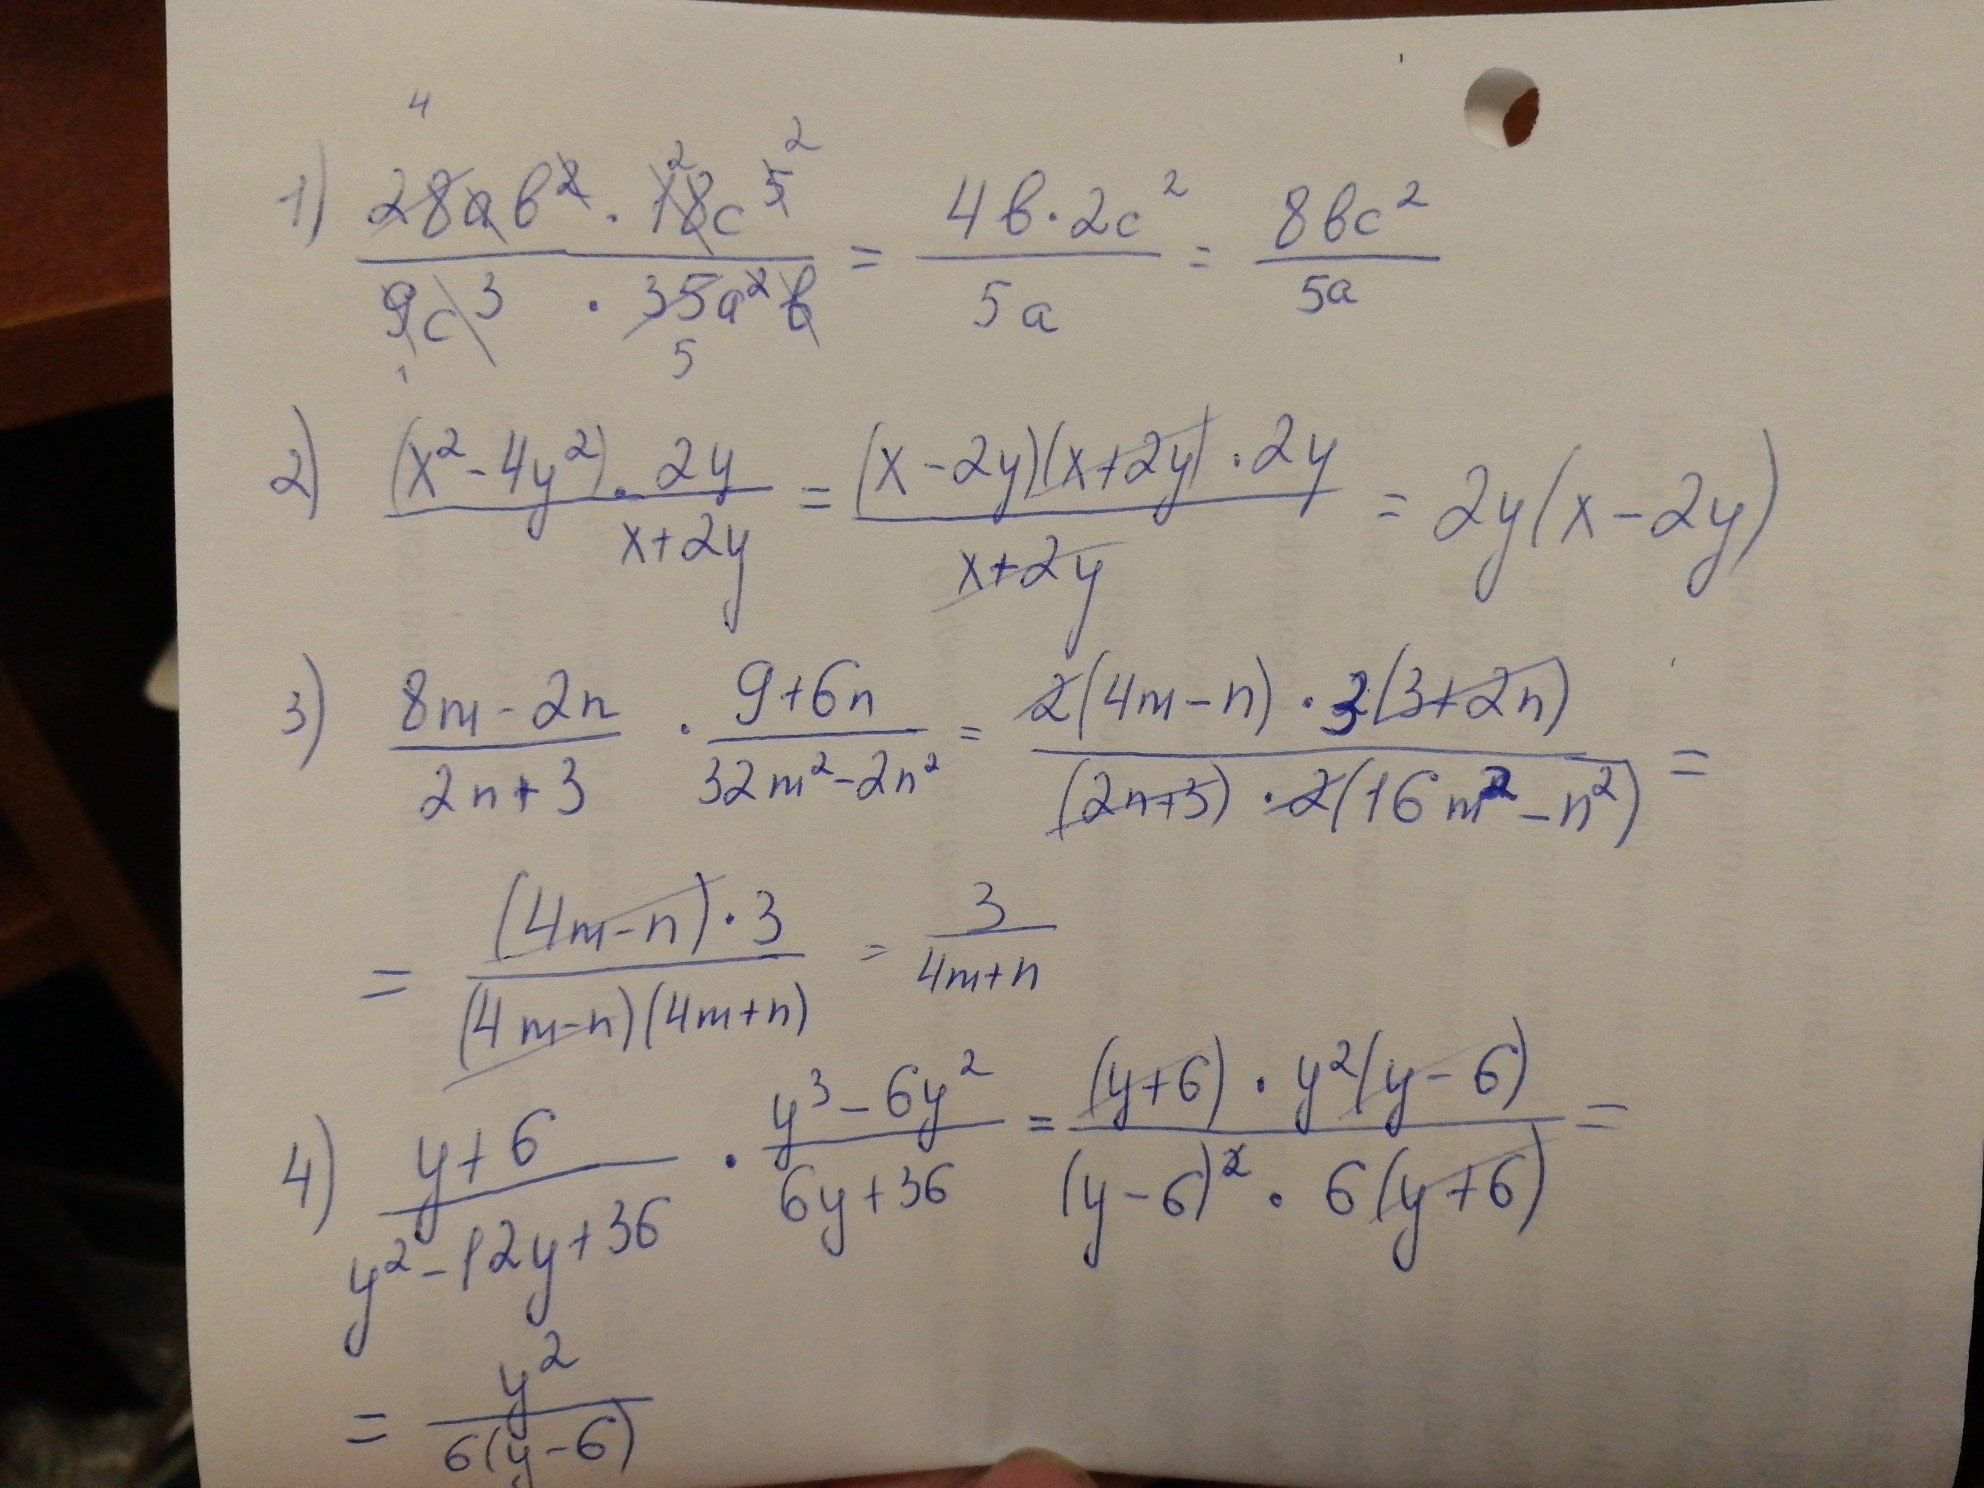 1) (28ab² · 18c⁵)/(9c³ · 35a²b) = (4b · 2c²)/(5a) = (8bc²)/(5a)
2) ((x² - 4y²) · 2y)/(x+2y) = ((x - 2y)(x+2y) · 2y)/(x+2y) = 2y(x - 2y)
3) (8m - 2n)/(2n+3) · (9+6n)/(32m² - 2n²) = (2(4m - n) · 3(3+2n))/((2n+3) · 2(16m² - n²)) =
= ((4m - n) · 3)/((4m - n)(4m+n)) = 3/(4m+n)
4) (y+6)/(y² - 12y+36) · (y³ - 6y²)/(6y+36) = ((y+6) · y²(y - 6))/((y - 6)² · 6(y+6)) =
= y²/(6(y - 6))